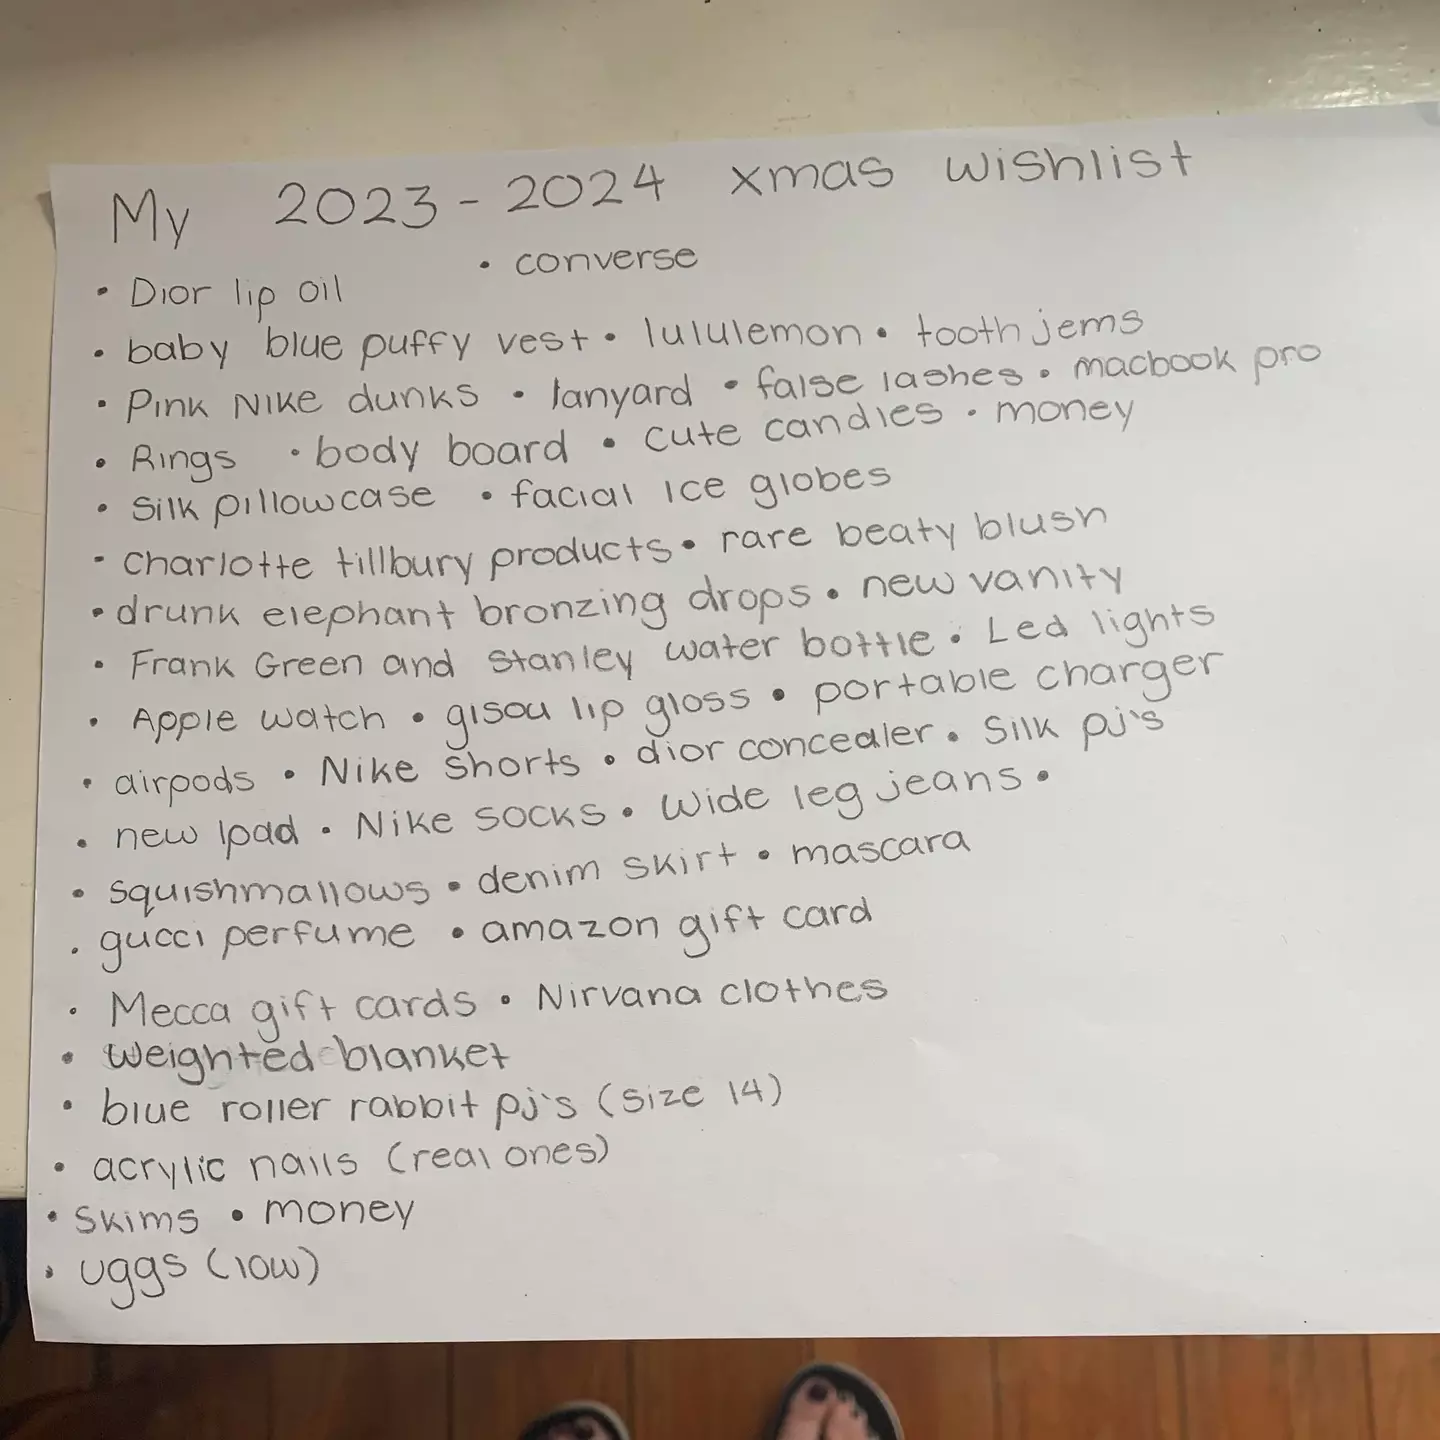 My 2023-2024 xmas wishlist
• Dior lip oil • converse
• baby blue puffy vest • lululemon • tooth jems
• Pink Nike dunks • lanyard • false lashes • macbook pro
• Rings • body board • cute candles • money
• Silk pillowcase • facial ice globes
• Charlotte tillbury products • rare beaty blush
• drunk elephant bronzing drops • new vanity
• Frank Green and Stanley water bottle • Led lights
• Apple watch • gisou lip gloss • portable charger
• airpods • Nike shorts • dior concealer • Silk pj's
• new Ipad • Nike socks • Wide leg jeans •
• squishmallows • denim skirt • mascara
• gucci perfume • amazon gift card
• Mecca gift cards • Nirvana clothes
• weighted blanket
• blue roller rabbit pj's (size 14)
• acrylic nails (real ones)
• skims • money
• uggs (low)